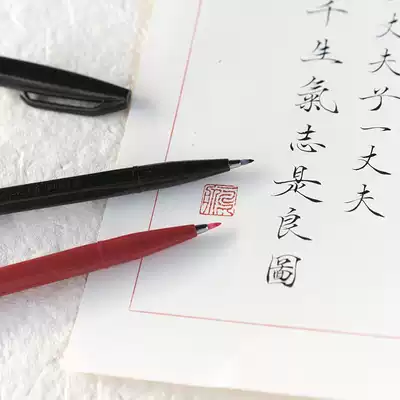 丈夫兮一丈夫
千生氣志是良圖